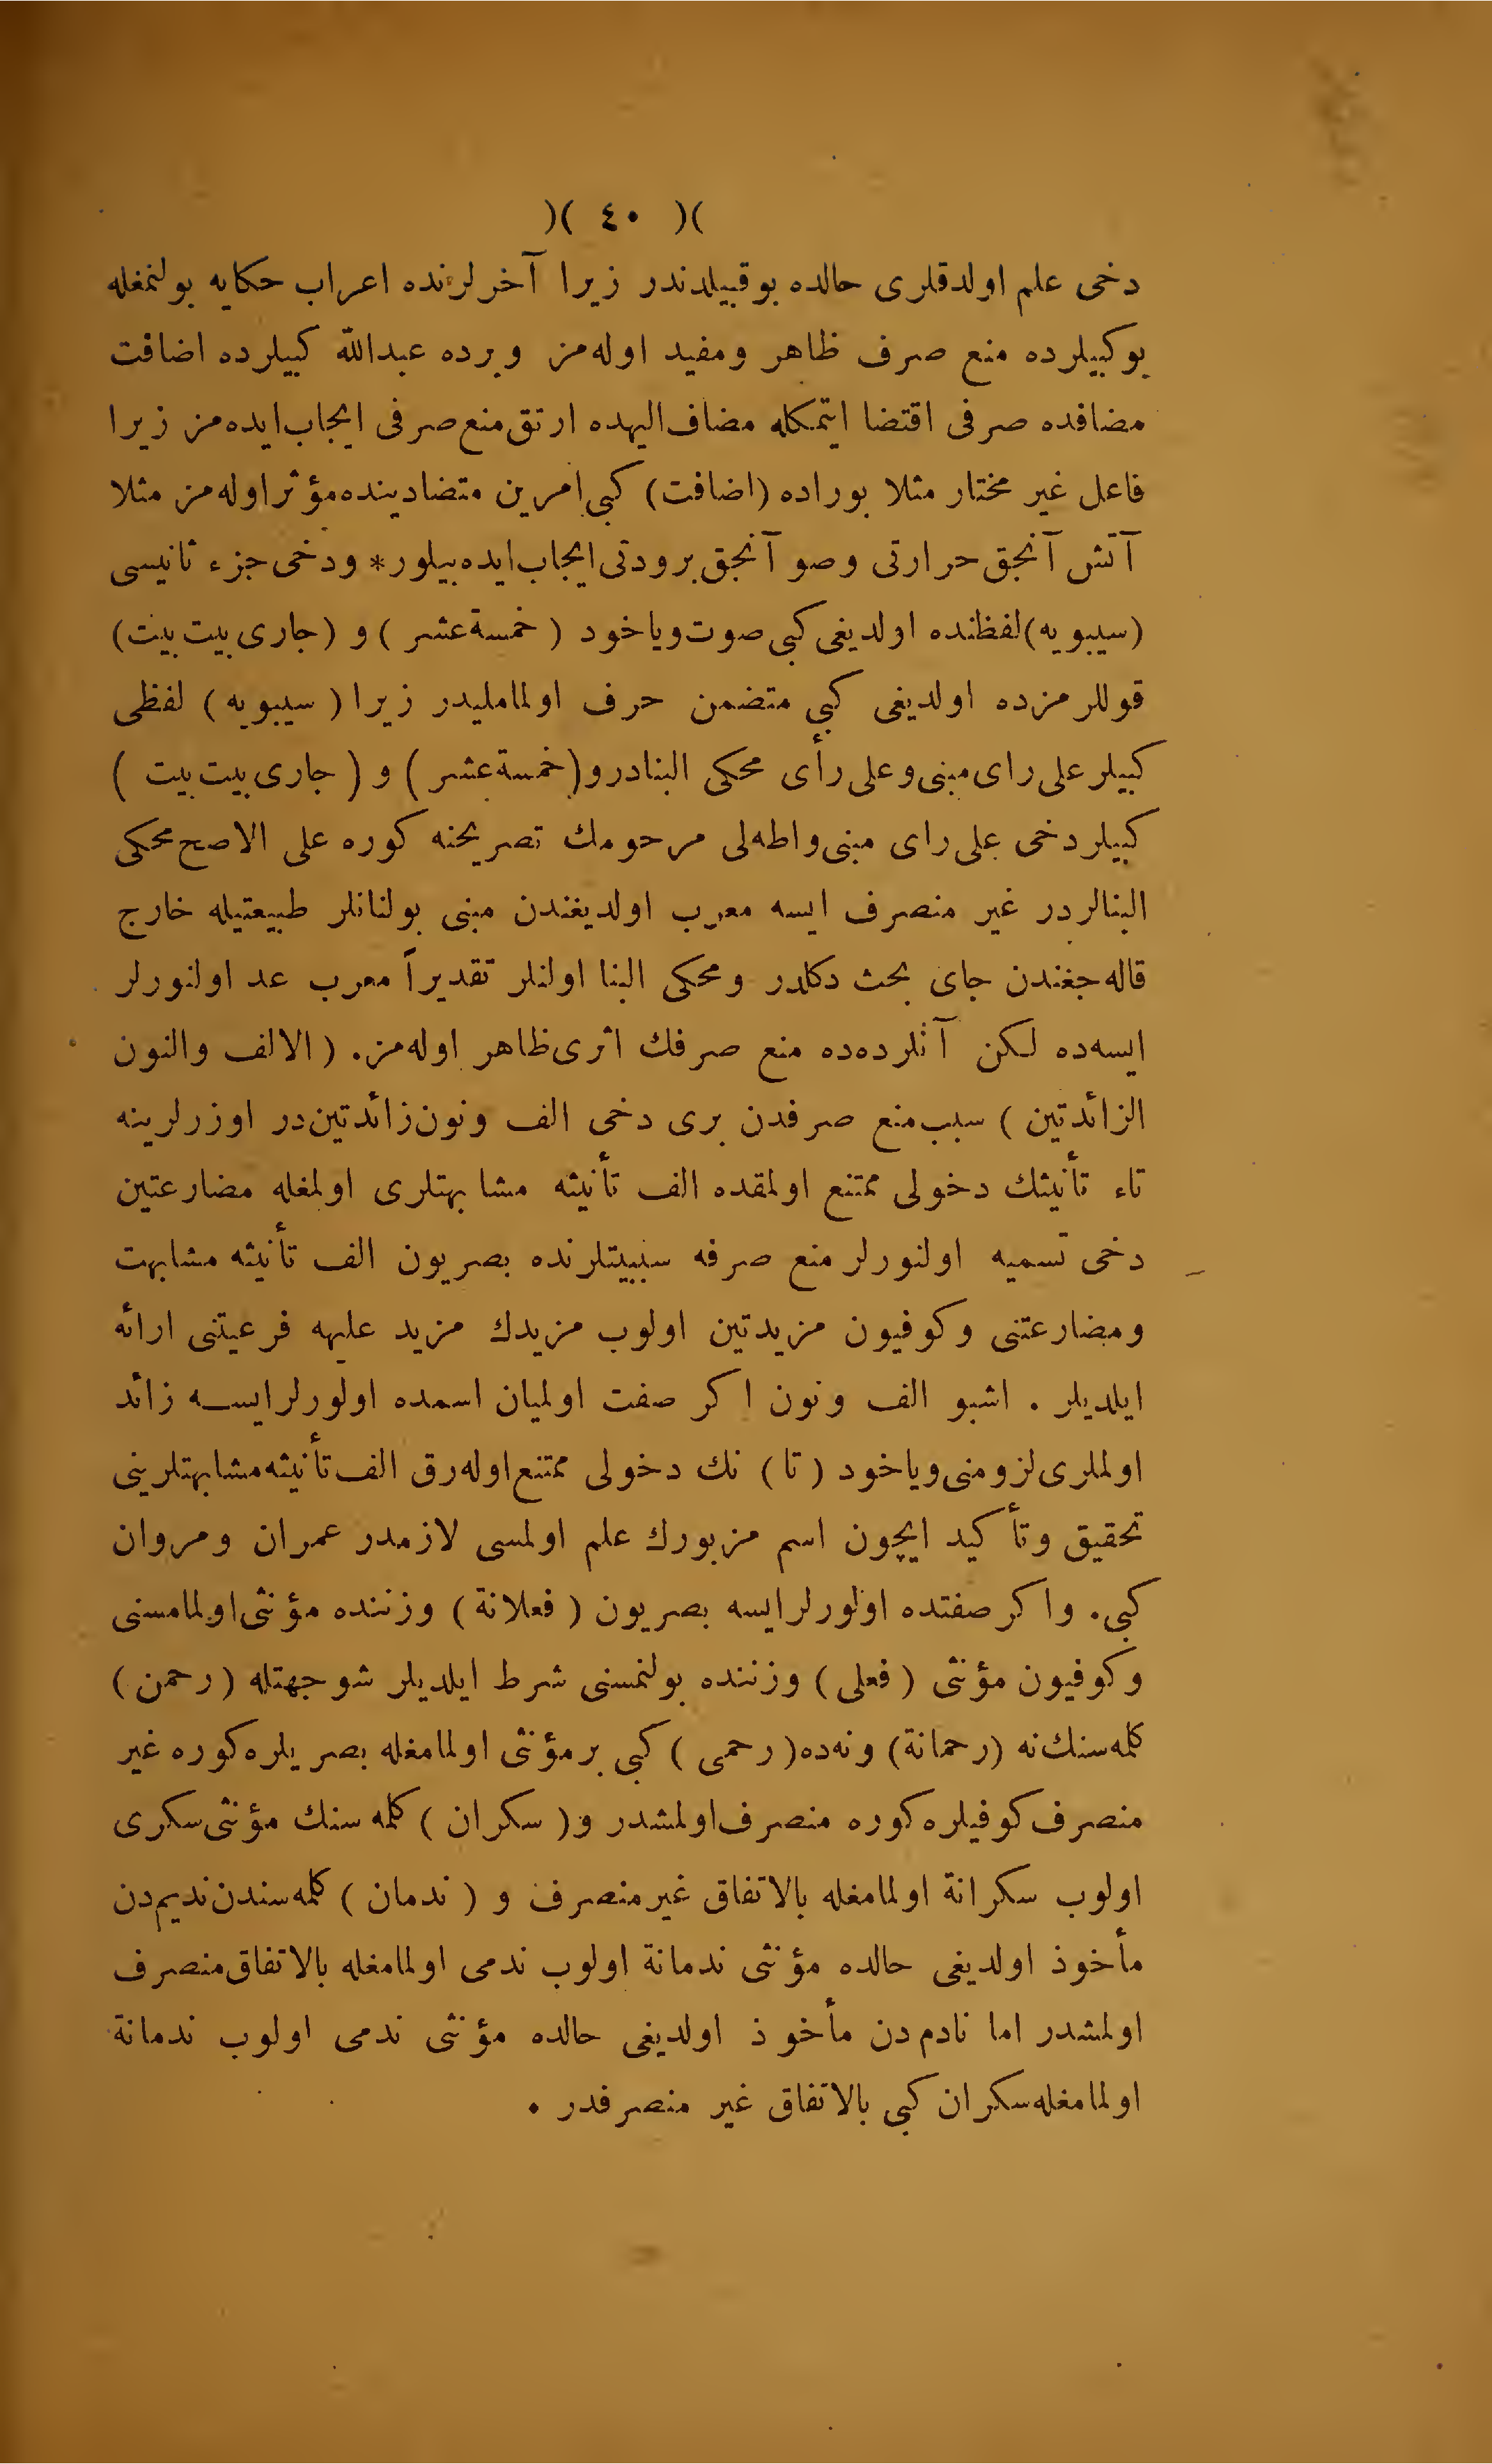 )( ٤٠ )(
دخی علم اولدقلری حالده بوقبیلدندر زیرا آخرلرنده اعراب حکایه بولنمغله
بوکبیلرده منع صرف ظاهر ومفید اوله‌مز وبرده عبدالله کبیلرده اضافت
مضافده صرفی اقتضا ایتمکله مضاف‌الیهده ارتق منع صرفی ایجاب ایده‌مز زیرا
فاعل غیر مختار مثلا بوراده (اضافت) کبی امرین متضادینده مؤثر اوله‌مز مثلا
آتش آنجق حرارتی وصو آنجق برودتی ایجاب ایده‌بیلور* ودخی جزء ثانیسی
(سیبویه) لفظنده اولدیغی کبی صوت ویاخود (خمسة عشر) و (جاری بیت بیت)
قوللرمزده اولدیغی کبی متضمن حرف اولمامليدر زیرا (سیبویه) لفظی
کبیلر علی رای مبنی وعلی رأی محکی البنادر و(خمسة عشر) و (جاری بیت بیت)
کبیلر دخی علی رای مبنی واطه‌لی مرحومك تصریحنه کوره علی الاصح محکی
البنالردر غیر منصرف ایسه معرب اولدیغندن مبنی بولنانلر طبیعتیله خارج
قاله‌جغندن جای بحث دکلدر ومحکی البنا اولنلر تقدیراً معرب عد اولنورلر
ایسه‌ده لکن آنلرده‌ده منع صرفك اثری ظاهر اوله‌مز. (الالف والنون
الزائدتین) سبب منع صرفدن بری دخی الف ونون زائدتین‌در اوزرلرینه
تاء تأنیثك دخولی ممتنع اولمقده الف تأنیثه مشابهتلری اولمغله مضارعتین
دخی تسمیه اولنورلر منع صرفه سببیتلرنده بصریون الف تأنیثه مشابهت
ومضارعتنی وکوفیون مزیدتین اولوب مزیدك مزید علیهه فرعیتنی ارائه
ایلدیلر . اشبو الف ونون اکر صفت اولمیان اسمده اولورلرایسه زائد
اولملری لزومنی ویاخود (تا) نك دخولی ممتنع اوله‌رق الف تأنیثه مشابهتلرینی
تحقیق وتأکید ایچون اسم مزبورك علم اولمسی لازمدر عمران ومروان
کبی. واکر صفتده اولورلرایسه بصریون (فعلانة) وزننده مؤنثی اولمامسنی
وکوفیون مؤنثی (فعلی) وزننده بولنمسنی شرط ایلدیلر شو جهتله (رحمن)
کلمه‌سنك نه (رحمانة) ونه‌ده (رحمی) کبی برمؤنثی اولمامغله بصریلره کوره غیر
منصرف کوفیلره کوره منصرف اولمشدر و(سکران) کلمه سنك مؤنثی سکری
اولوب سکرانة اولمامغله بالاتفاق غیر منصرف و (ندمان) کلمه‌سندن ندیم‌دن
مأخوذ اولدیغی حالده مؤنثی ندمانة اولوب ندمی اولمامغله بالاتفاق منصرف
اولمشدر اما نادم‌دن مأخوذ اولدیغی حالده مؤنثی ندمی اولوب ندمانة
اولمامغله سکران کبی بالاتفاق غیر منصرفدر .